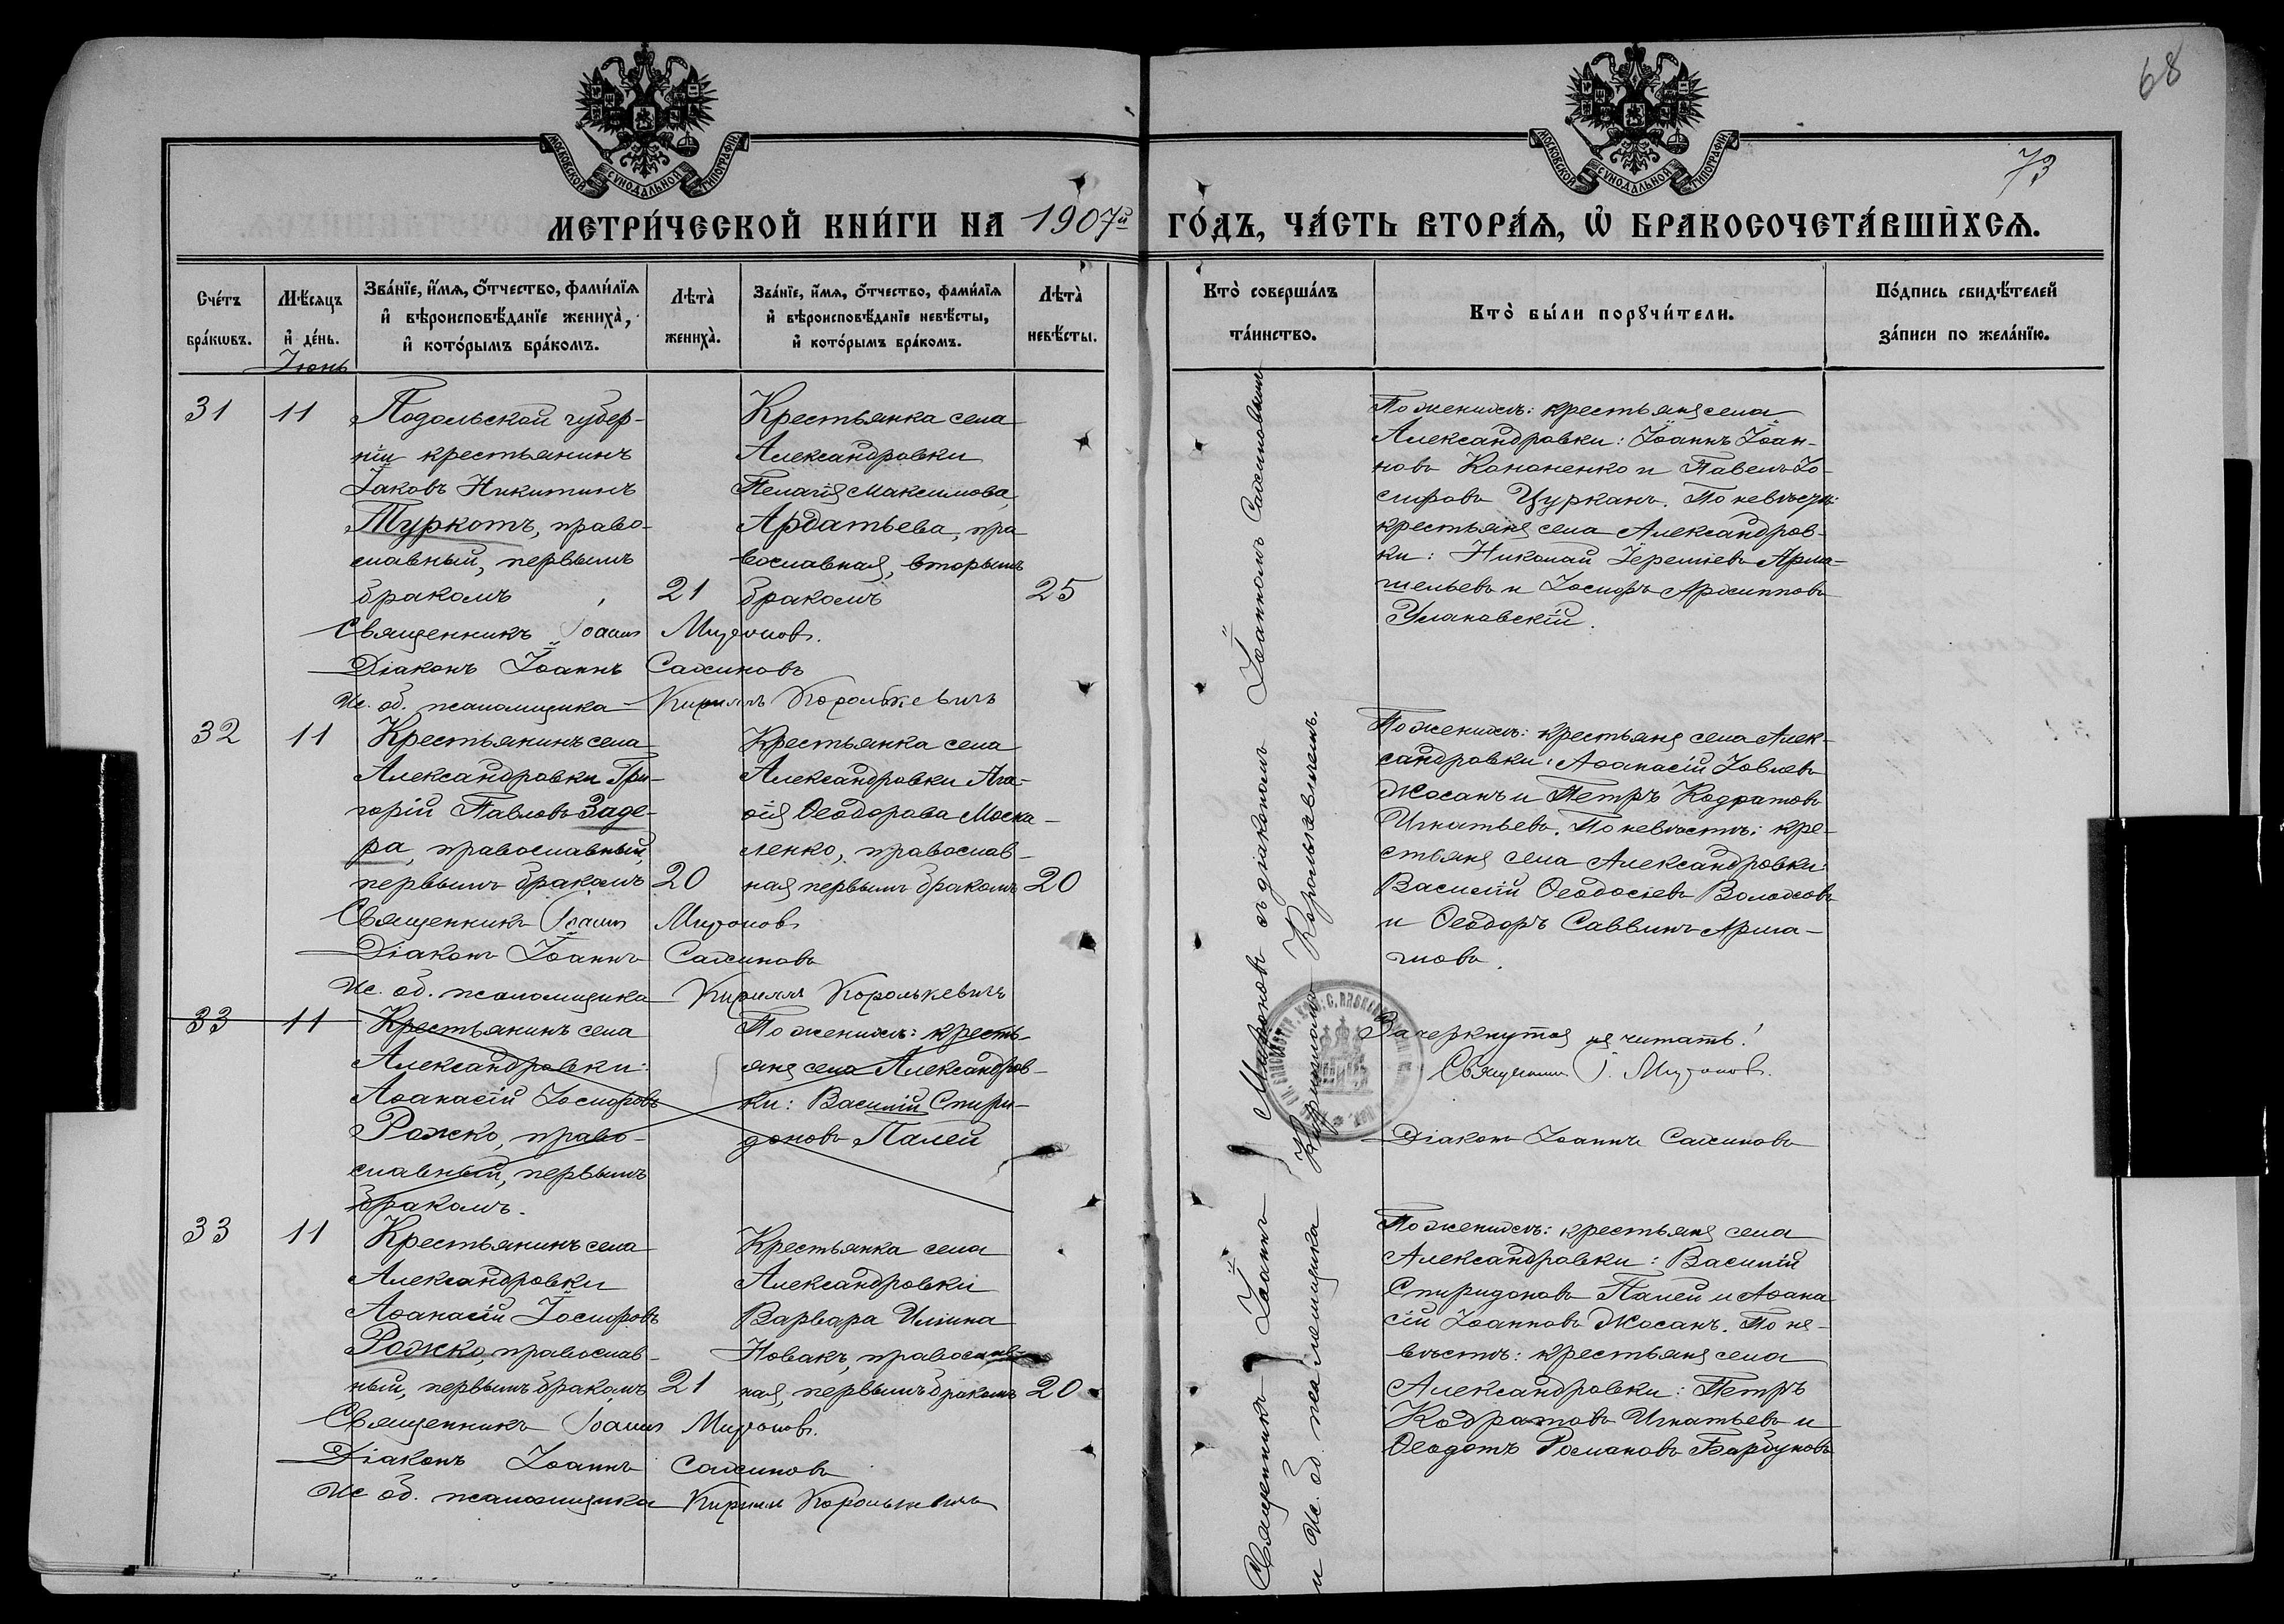 68
73
МОСКОВСКОЙ СѴНОДАЛЬНОЙ ТИПОГРАФІИ
МОСКОВСКОЙ СѴНОДАЛЬНОЙ ТИПОГРАФІИ
МЕТРИ́ЧЕСКОЙ КНИ́ГИ НА 1907й ГО́ДЪ, ЧА́СТЬ ВТОРА́Ѧ, Ѡ҆ БРАКОСОЧЕТА́ВШИХСѦ.
Сче́тъ бра́кѡвъ.
Мѣ́сяцъ и҆ де́нь.
Зва́нїе, и҆́мѧ, ѻ҆́тчество, фами́лїѧ
и҆ вѣроисповѣ́данїе жениха̀,
и҆ кото́рымъ бра́комъ.
Лѣта̀ жениха̀.
Зва́нїе, и҆́мѧ, ѻ҆́тчество, фами́лїѧ
и҆ вѣроисповѣ́данїе невѣ́сты,
и҆ кото́рымъ бра́комъ.
Лѣта̀ невѣ́сты.
Кто̀ соверша́лъ та́инство.
Кто̀ бы́ли порꙋчи́тели.
По́дпись свидѣ́телей за́писи по жела́нїю.
Іюнь
31
11
Подольской губер-
ніи крестьянинъ
Іаковъ Никитинъ
Туркотъ, право-
славный, первымъ
бракомъ
21
Крестьянка села
Александровки
Пелагія Максимова
Ардатьева, пра
вославная, вторымъ
бракомъ
25
Священникъ Іоаннъ Миронов.
Діаконъ Іоаннъ Сахиновъ
Ис. об. псаломщика Кириллъ Королькевичъ
По женихѣ: крестьяне села
Александровки: Іоаннъ Іоан-
новъ Кононенко и Павелъ Іо-
сифовъ Цурканъ. По невѣстѣ:
крестьяне села Александров-
ки: Николай Іереміевъ
и Іосифъ Архипповъ
Улановскій.
32
11
Крестьянинъ села
Александровки Гри-
горій Павловъ Заде-
ра, православный,
первымъ бракомъ
20
Крестьянка села
Александровки Ага-
ѳія Ѳеодорова Моска-
ленко, православ-
ная первымъ бракомъ
20
Священникъ Іоаннъ Миронов
Діаконъ Іоаннъ Сахиновъ
Ис. об. псаломщика Кириллъ Королькевичъ
По женихѣ: крестьяне села Алек-
сандровки: Аѳанасій Іовлевъ
Жосанъ и Петръ Кодратовъ
Игнатьевъ. По невѣстѣ: кре-
стьяне села Александровки:
Василій Ѳеодосіевъ
и Ѳеодоръ Саввинъ Арма-
шовъ.
33
11
Крестьянинъ села
Александровки:
Аѳанасій Іосифовъ
Рожко, право-
славный, первымъ
бракомъ.
По женихѣ: кресть-
яне села Александров-
ки: Василій Спири-
доновъ Палей
Зачеркнутое не читать!
Священник І. Миронов.
Діаконъ Іоаннъ Сахиновъ
33
11
Крестьянинъ села
Александровки
Аѳанасій Іосифовъ
Рожко, православ-
ный, первымъ бракомъ
21
Крестьянка села
Александровки
Варвара Иліина
Новакъ, православ-
ная, первымъ бракомъ
20
Священникъ Іоаннъ Миронов.
Діаконъ Іоаннъ Сахиновъ
Ис об. псаломщика Кириллъ Королькевичъ
По женихѣ: крестьяне села
Александровки: Василій
Спиридоновъ Палей и Аѳана
сій Іоанновъ Жосанъ. По не-
вѣстѣ: крестьяне села
Александровки: Петръ
Кодратовъ Игнатьевъ и
Ѳеодотъ Романовъ Барбуновъ
Священникъ Іоаннъ Мироновъ съ діакономъ Іоанномъ Сахиновымъ
и Ис. об. псаломщика Кирилломъ Королькевичемъ.